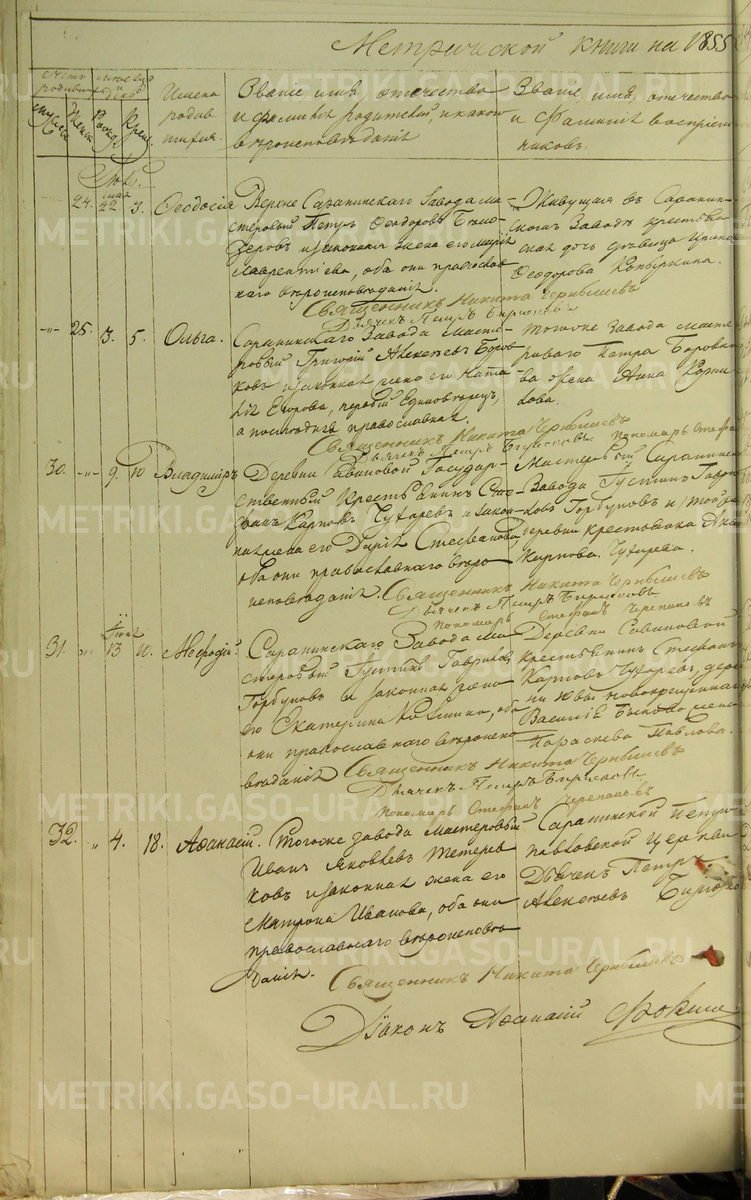 Метрической книги на 1855
Счетъ родивш.
Мѣсяцъ и день
Имена родив
шихся.
Званіе имя, отечество
и фамилія родителей, и какого
вѣроисповѣданія
Званіе, имя, отечество
и фамилія воспріем
никовъ.
24. 22 3. Ѳеодосія
Верхне Саранинскаго Завода ма=
стеровый Петръ Ѳеодоровъ
и законная жена его Марія
Лаврентіева, оба они православ
наго вѣроисповѣданія.
Живущая въ Саранин-
скомъ Заводѣ крестьян
ская дочь дѣвица
Ѳеодорова
Священникъ Никита Чернышевъ
Дьячекъ Петръ Бирюковъ
-"- 25. 3. 5. Ольга.
Саранинскаго Завода масте-
ровый Григорій Алексѣевъ Боров
ковъ и законная жена его Ната
лія Егорова, первый Единовѣрецъ,
а послѣдняя православная.
Тогоже Завода масте
роваго Петра Боровко
ва жена Анна
Священникъ Никита Чернышевъ
Дьячекъ Петръ Бирюковъ. Пономарь Стефа
30. -"- 9. 10 Владиміръ
Деревни Савиновой Государ-
ственный Крестьянинъ Сте-
фанъ Карповъ Чухаревъ и закон
ная жена его Дарія Стефанова
оба они православнаго вѣро
исповѣданія.
Мастеровый Саранинск
Завода Густинъ Гаври
ловъ Горбуновъ и той же
деревни крестьянка
Карпова Чухарева.
Священникъ Никита Чернышевъ
Дьячекъ Петръ Бирюковъ
Пономарь Стефанъ Черепановъ
31. " 13 Меѳодій
Саранинскаго Завода Ма
стеровый Густинъ Гавриловъ
Горбуновъ и законная жена
его Екатерина, оба
они православнаго вѣроиспо
вѣданія
Деревни Савиновой
крестьянинъ Стефанъ
Карповъ Чухаревъ, дерев
ни новокрещенная
Василія жена
Параскева Павлова.
Священникъ Никита Чернышевъ
Дьячекъ Петръ Бирюковъ
Пономарь Стефанъ Черепановъ
32. " 4. 18. Аѳанасій.
Тогоже завода Мастеровый
Иванъ Яковлевъ Тетерь
ковъ и законная жена его
Матрона Иванова, оба они
православнаго вѣроисповѣ
данія.
Саранинской Петро
павловской Церкви
Дьячекъ Петръ
Алексѣевъ Бирюко
Священникъ Никита Чернышевъ
Дьяконъ Аѳанасій
METRIKI.GASO-URAL.RU
METRIKI.GASO-URAL.RU
METRIKI.GASO-URAL.RU
METRIKI.GASO-URAL.RU
METRIKI.GASO-URAL.RU
METRIKI.GASO-URAL.RU
METRIKI.GASO-URAL.RU